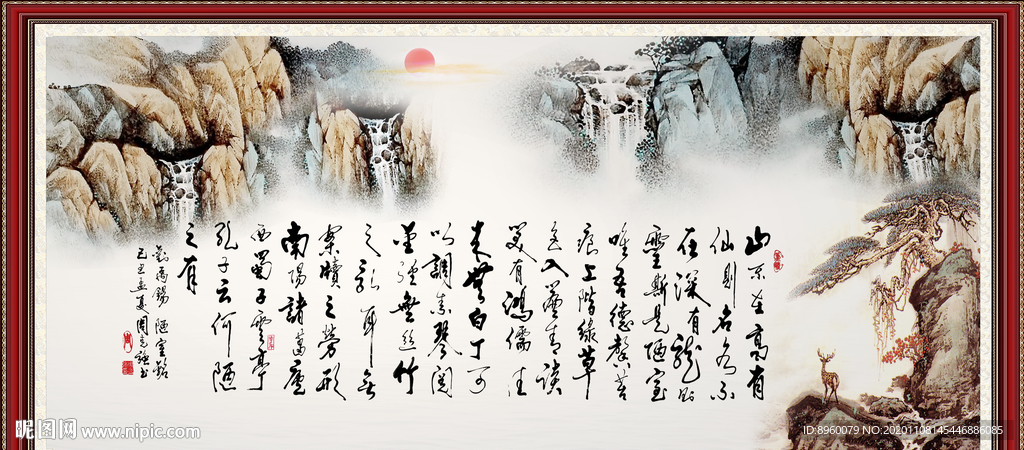 山不在高有
仙則名水不
在深有龍則
靈斯是陋室
唯吾德馨苔
痕上階綠草
色入簾青談
笑有鴻儒往
來無白丁可
以調素琴閱
金經無絲竹
之亂耳無
案牘之勞形
南陽諸葛廬
西蜀子雲亭
孔子云何陋
之有
劉禹錫 陋室銘
己丑孟夏周書
昵图网 www.nipic.com
ID:8960079 NO:20201108145446886085